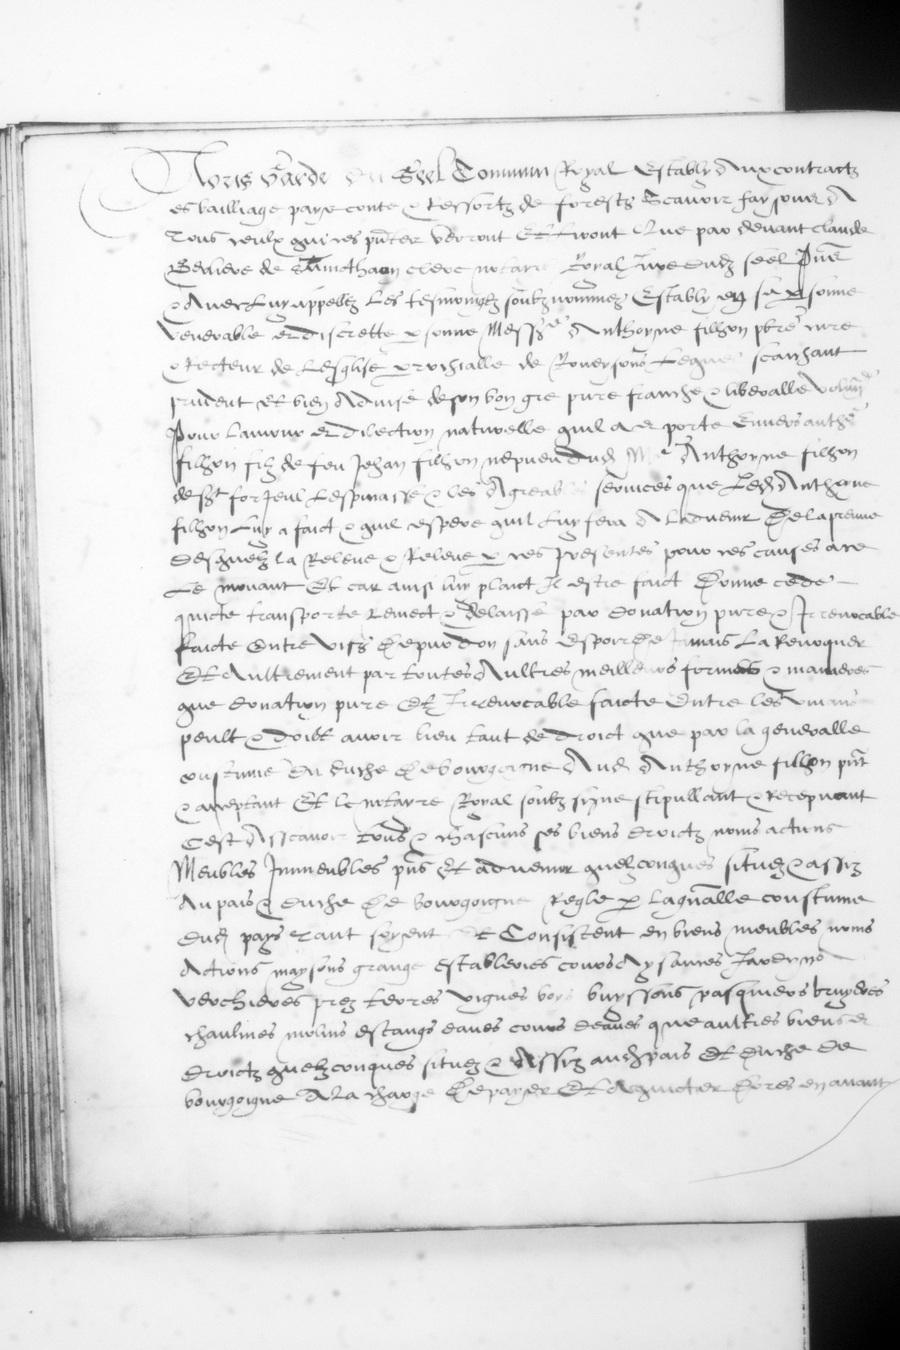 Nous garde du Seel Commun Royal Estably Aux contractz
es bailliage pays conte & ressortz de forestz Scavoir faysons A
Tous ceulx qui ces pñtes verront Et orront Que par devant claude
de clerc notaire Royal Jure dudz seel
& Avec Luy appellez Les tesmoingtz soubz nommez Estably en sa personne
Venerable et discrette personne Messre Anthoyne filhon pbre cure
& Recteur de Lesglise parrochialle de Lequel scaichant
prudent Et bien Advise de son bon gre pure franche & liberalle
Pour Lamour et dilection naturelle quil a et porte Envers anthe
filhon filz de feu Jehan filhon nepveu dudz Mre Anthoyne filhon
de Lespinasse & les Agreables services que Ledz Anthoyne
filhon Luy a faict & quil espere quil Luy fera A Ladvenir De la preuve
Desquelz la Releve & Releve par ces presentes pour ces causes a ce
Le mouant Et car ainsi luy plaict Il estre faict Donne cede
quicte transporte Remect & delaisse par donation pure & Irrevocable
faicte Entre vifz De pur don sans espoir de Jamais La Revoquer
Et Aultrement par toutes Aultres meilleurs formes & manieres
que donation pure Et Irrevocable faicte Entre les
peult & doibt avoir lieu tant de droict que par la generalle
coustume du duche De bourgoigne Audz Anthoyne filhon pñt
& acceptant Et le notaire Royal soubz signe stipullant & Recepvant
Cest Asscavoir Tous & chascuns ses biens droictz noms actions
Meubles Immeubles pñs Et advenir quelzconques situez & assiz
Au pais & duche De bourgoigne Regle par Laquelle coustume
dudz pays Tant soyent Et Consistent en biens meubles noms
Actions maysons grange estableries cours Aysances Jardrins
Verchieres prez terres vignes boys buyssons pasquiers bruyeres
chaulmes molins estangs eaues cours deaues que aultres biens &
droictz quelzconques situez & Assiz ausdz pais Et Duche De
bourgoigne A La charge De payer Et Acquicter Dores en avant